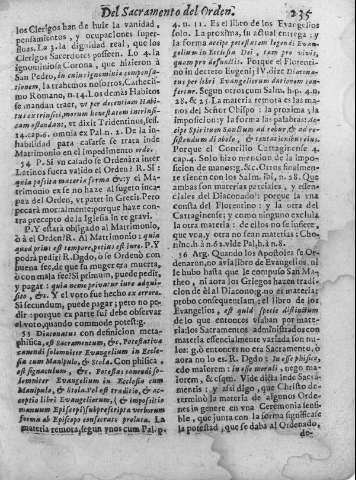 Del Sacramento del Orden. 235
los Clerigos han de huìr la vanidad,
pensamientos, y ocupaciones super-
fluas. La 3. la dignidad real, que los
Clerigos Sacerdotes posseen. Lo 4. la
ignominiosa Corona, que hizieron à
San Pedro, in cuius ignominia compensa-
tionem, la trahemos nosotros. Cathecis-
mo Romano, n. 14. Los demàs Habitos
se mandan traer, vt per decentiam Habi-
tus extrinseci, morum honestatem intrinse-
cam ostendant, vt dixit Tridentinus, sess.
14. cap. 6. omnia ex Pal. n. 2. De la in-
habilidad para casarse se trata inde
Matrimonio en el impedimento ordo.
54 P. Si vn casado se Ordenàra inter
Latinos fuera valido el Orden? R. Sì:
quia posita materia forma &c. y el Ma-
trimonio ex se no haze al sugeto incapaz
del Orden, vt patet in Grecis. Pero
pecarà mortalmente; porque haze con-
tra precepto de la Iglesia in re gravi.
P. Y estarà obligado al Matrimonio,
ò à el Orden? R. Al Matrimonio: quia
quod prius est tempore, potius est iure. P. Y
podrà pedir? R. Dgdo, si se Ordenò con
buena fee, de que su muger era muerta,
ò con mala fee? Si primum, puede pedir,
y pagar: quia nemo privatur iure aquisi-
to, &c. Y el voto fue hecho ex errore.
Si secundum, puede pagar; pero no pe-
dir: porque ex parte sui debe observar
el voto, quando commodè potest.
55 Diaconatus con definicion meta-
phisica, est Sacramentum, &c. Potestativa
canendi solemniter Evangelium in Eccle-
sia cum Manipulo, & Stola. Con phisica,
est signaculum, &c. Potestas canendi so-
lemniter Evangelium in Ecclesia cum
Manipulo, & Stola. Vel est traditio, & ac-
ceptio libri Evangeliorum, (& impositio
manuum Episcopi) sub prescripta verborum
forma ab Episcopo confectas prolata. La
materia remota, segun vnos cum Pal. p.
4. n. 11. Es el libro de los Evangelios
solo. La proxima, su actual entrega: y
la forma accipe potestatem legendi Evan-
gelium in Ecclesia Dei, tam pro vivis,
quam pro defunctis. Porque el Florenti-
no in decreto Eugenij IV. dize Diacona-
tus per libri Evangeliorum dationem con-
fertur. Segun otros cum Salm. h. p. 4. n.
28. & 25. La materia remota es las ma-
nos del Señor Obispo: la proxima, la
imposicion: y la forma las palabras: Ac-
cipe Spiritum Sanctum ad robur, & ad re-
sistendum diabolo, & tentationibus eius.
Porque el Concilio Cartaginense 4.
cap. 4. Solo hizo mencion de la imposi-
cion de manos, &c. Otros finalmen-
te tienen con los Salm. ibi, n. 28. Que
ambas son materias parciales, y essen-
ciales del Diaconado: porque la vna
consta del Florentino: y la otra del
Cartaginense: y como ninguno excluìa
la otra materia; de ellos no se infiere,
que vna, y otra no sean materias:
56 Arg. Quando los Apostoles se Or-
denaron, no avìa libro de Evangelios, ni
le hubo hasta que le compuso San Ma-
theo, ni aora los Griegos hazen tradicion
de èl al Diacono; ergo no es materia:
probo consequentiam, el libro de los
Evangelios, est quid specie distinctum
de lo que entonces vsaban por mate-
ria: los Sacramentos administrados con
materia essencialmente variada son nu-
los: ergò entonces no era Sacramento, ò
aora no lo es. R. Dgdo: In esse phisico,
cdo maiorem: in esse morali, nego maio-
rem, & csqm. Vide dicta inde Sacra-
mentis: y assi digo, que Christo de-
terminò la materia de algunos Orde-
nes in genere en vna Ceremonia sensi-
ble, que junta con la forma significasse
la potestad, que se daba al Ordenado,
do-